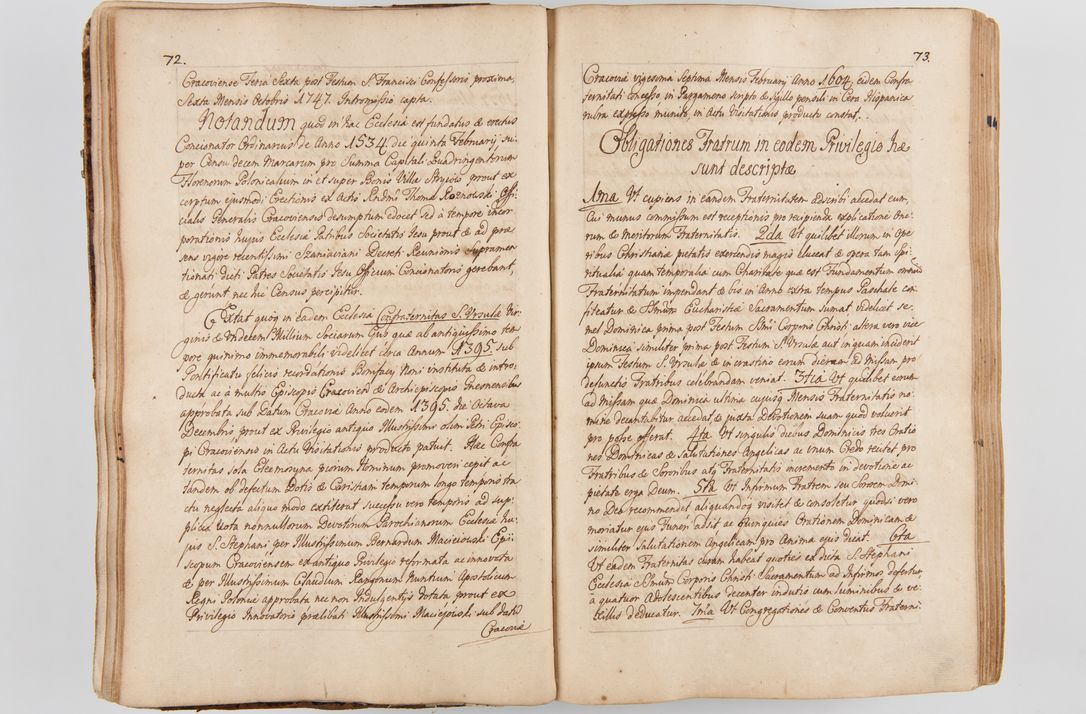 72.
Cracoviense Feria Sexta post Festum S. Francisci Confessoris proxima,
Sexta Mensis Octobris 1747. Intromissio capta.
Notandum quod in hac Ecclesia est fundatus & erectus
Concionator Ordinarius de Anno 1534. die quinta Februarij su-
per Censu decem Marcarum pro Summa Capitali Quadringentorum
Florenorum Polonicalium in et super Bonis Villa prout ex-
cerptum ejusmodi Erectionis ex Actis Rndmi Thoma Offi-
cialis Generalis Cracoviensis desumptum docet sed à tempore incor-
porationis hujus Ecclesiæ Patribus Societatis Jesu prout & ad præ-
sens vigore recentissimi Szaniaviani Decreti Reunionis supramen-
tionati dicti Patres Societatis Jesu Officium Concionatoris gerebant,
& gerunt nec hic Census percipitur.
Extat quoq in eadem Ecclesia Confraternitas S. Ursulæ Vir-
ginis & Undecem Millium Sociarum Ejus quæ ab antiquissimo tem-
pore quinimo immemorabili videlicet circa Annum 1395. sub
Pontificatu felicis recordationis Bonifacij Noni instituta & intro-
ducta ac a multis Episcopis Cracovien & Archiepiscopis Gnesnensibus
approbata sub Datum Cracoviæ Anno eodem 1395. die Octava
Decembris prout ex Privilegio antiquo Illustrissimi olim Petri Episco-
pi Cracoviensis in Actu Visitationis producto patuit. Hæc Confra-
ternitas sola Eleemosyna piorum Hominum promoveri cepit ac
tandem ob defectum Dotis & Caristiam temporum longo temporis tra-
ctu neglecta aliquo modo extiterat successu vero temporis ad sup-
plicia vota nonnullorum Devotorum Parochianorum Ecclesiæ hu-
jus S. Stephani per Illustrissimum Bernardum Macieiovski Epi-
scopum Cracoviensem ex antiquo Privilegio reformata ac innovata
& per Illustrissimum Claudium Rangonum Nuntium Apostolicum
Regni Poloniæ approbata nec non Indulgentijs dotata prout ex
Privilegio Innovatoris prælibati Illustrissimi Macieiovski sub Datis
Cracoviæ
73.
Cracoviæ vigesima Septima Mensis Februarij Anno 1604 eidem Confra-
ternitati concesso in Pargameno scripto & sigillo pensili in Cera Hispanica
rubra expresso munito, in Actu Visitationis producto constat.
Obligationes Fratrum in eodem Privilegio hæ
sunt descriptæ
1ma Ut cupiens in eandem Fraternitatem adscribi accedat eum,
Cui munus commissum est receptionis pro recipienda explicatione One-
rum & meritorum Fraternitatis. 2da Ut quilibet illorum in ope-
ribus Christianæ pietatis exercendis magis eluceat & opera tam Spi-
ritualia quam temporalia cum Charitate quæ est Fundamentum omnis
Fraternitatum impendant & bis in Anno extra tempus Paschale con-
fiteatur & SSmum Eucharistiæ Sacramentum sumat, videlicet se-
mel Dominica prima post Festum SSmi Corporis Christi altera vero vice
Dominica similiter prima post Festum S. Ursulæ aut in quam inciderit
ipsum Festum S. Ursulæ & in crastino eorum dierum ad Missam pro
defunctis Fratribus celebrandam veniat. 3tia Ut quilibet eorum
ad Missam quæ Dominica ultima cujusq Mensis Fraternitatis no-
mine decantabitur accedat & juxta Devotionem suam quod voluerit
pro petre offerat. 4ta Ut singulis diebus Dominicis tres Oratio-
nes Dominicas & Salutationes Angelicas ac unum Credo recitet pro
Fratribus & Sororibus atq Fraternitatis incremento in devotione ac
pietate erga Deum. 5ta Ut Infirmum Fratrem seu Sororem Domi-
no Deo recommendet aliquandoq visitet & consoletur quodsi vero
moriatur ejus Funeri adsit ac quinquies Orationem Dominicam &
similiter Salutationem Angelicam pro Anima ejus dicat. 6ta
Ut eadem Fraternitas curam habeat quoties ex dicta S. Stephani
Ecclesia SSmum Corporis Christi Sacramentum ad Infirmos defertur
à quatuor Adolescentibus decenter indutis cum luminibus & ve-
xillis deducatur. 7ma Ut Congregationes & Conventus Fraterni-